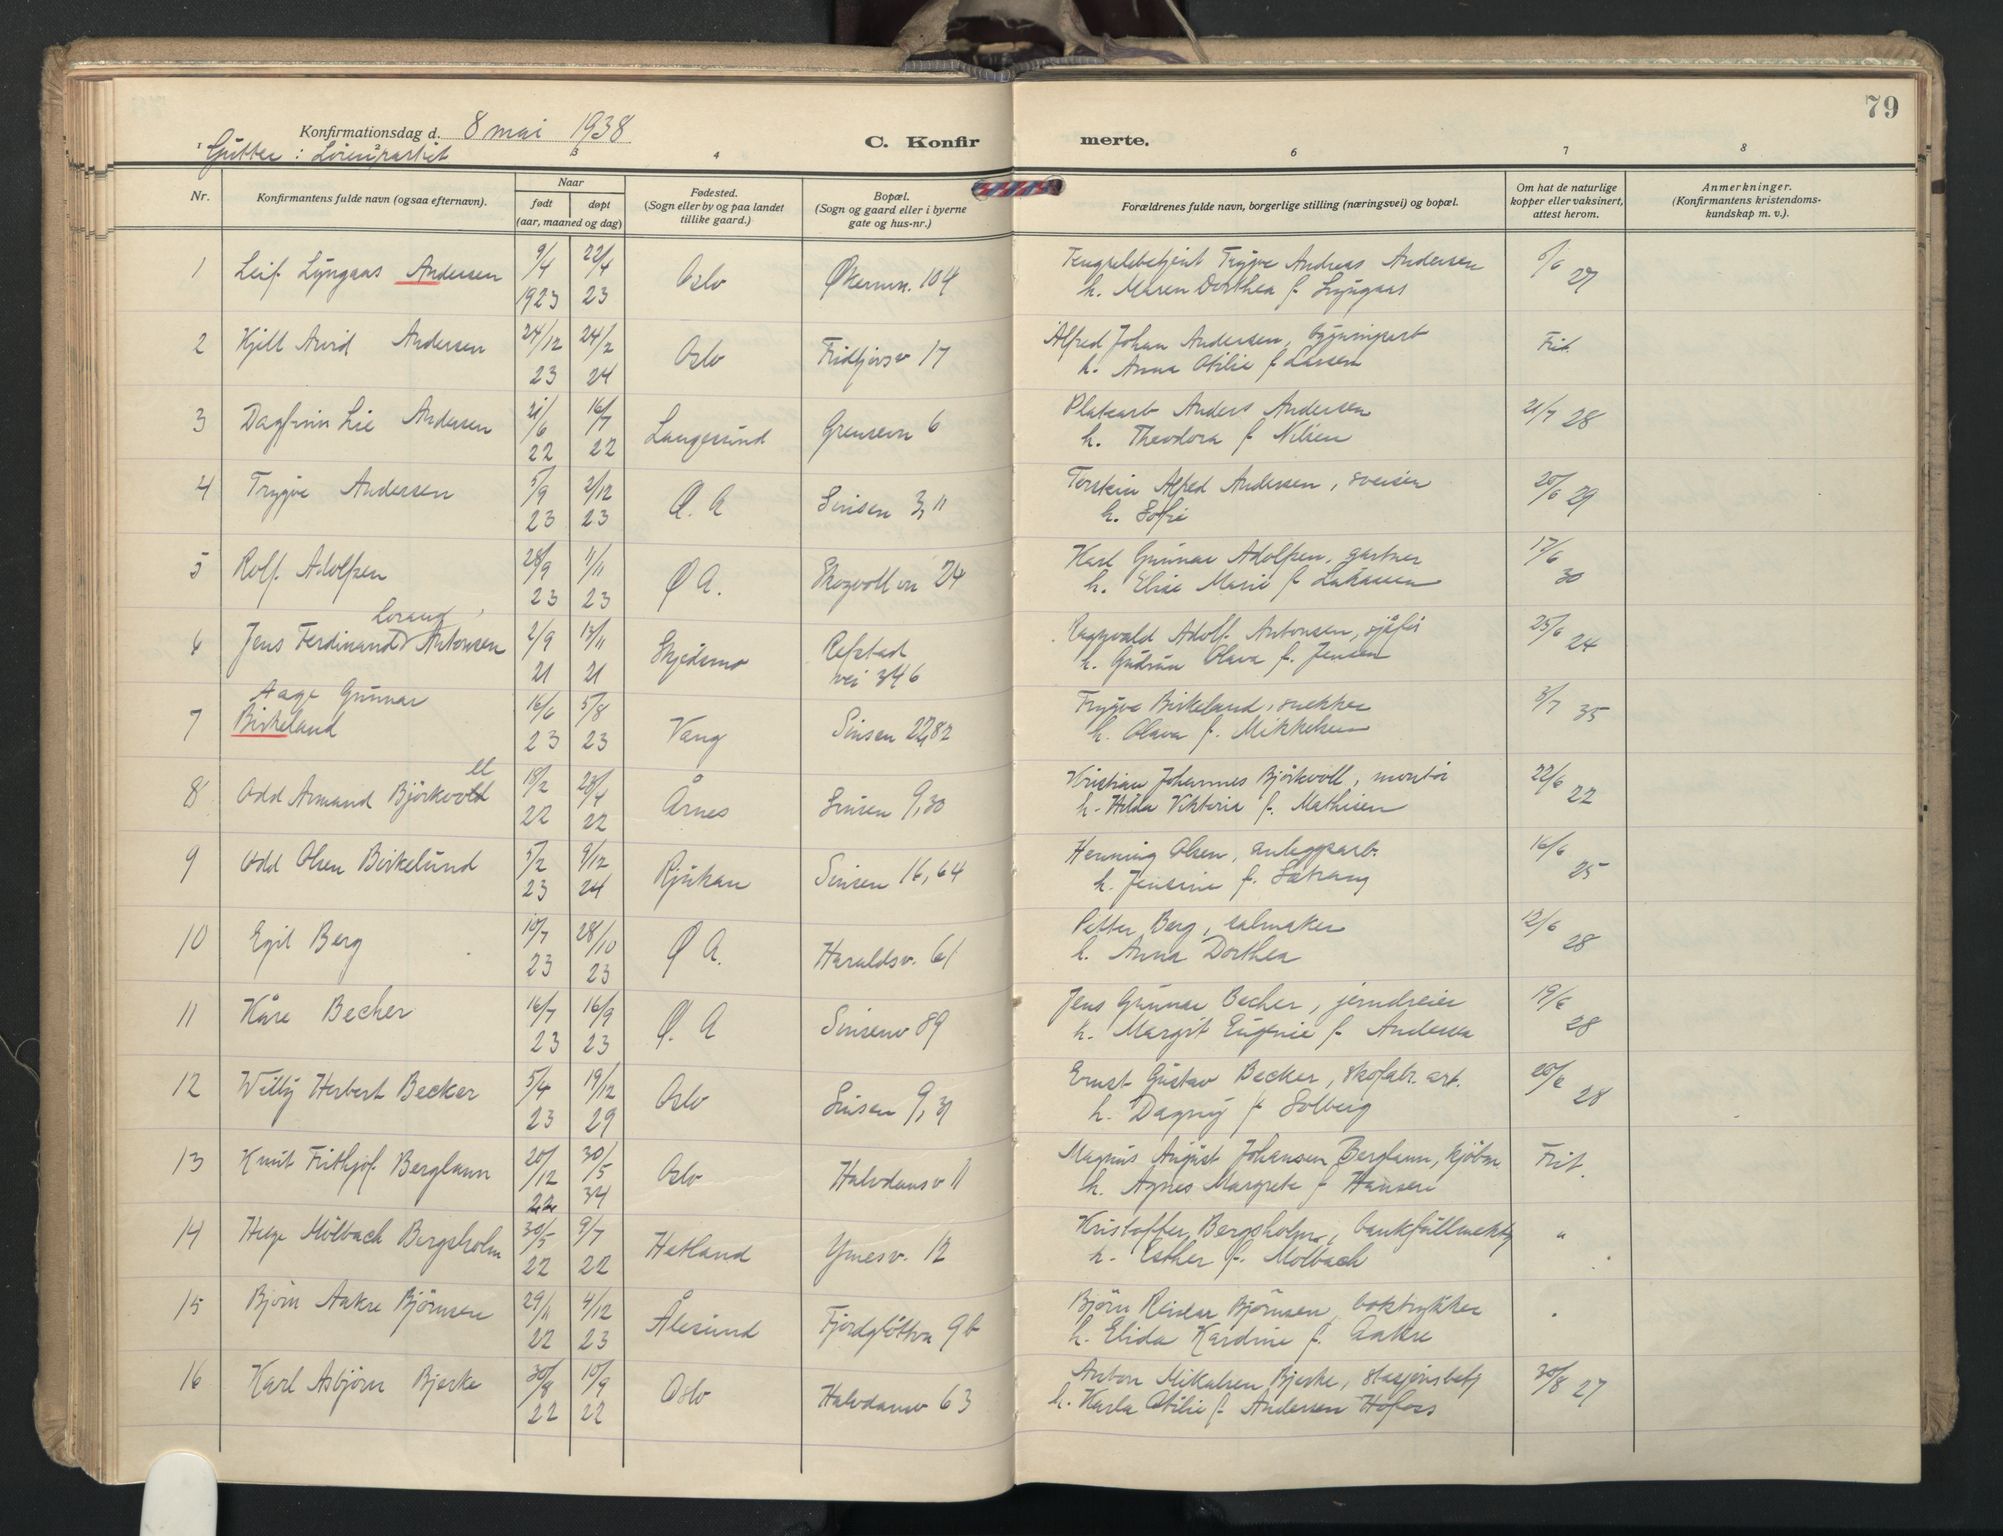 79
Konfirmationsdag d. 8 mai 1938
C. Konfirmerte.
Gutter :
1 2 3 4 6 7 8
Nr.
Konfirmantens fulde navn (ogsaa efternavn).
Naar
født døpt
(aar, maaned og dag)
Fødested.
(Sogn eller by og paa landet
tillike gaard.)
Bopæl.
(Sogn og gaard eller i byerne
gate og hus-nr.)
Forældrenes fulde navn, borgerlige stilling (næringsvei) og bopæl.
Om hat de naturlige
kopper eller vaksinert,
attest herom.
Anmerkninger.
(Konfirmantens kristendoms-
kundskap m. v.).
1 Leif Lyngaas Andersen 9/4 1923 22/4 23 Oslo Økernv. 104
Trygve Andreas Andersen
h. Maren Dorthea f. Lyngaas 27
2 Kjell Arvid Andersen 24/12 23 24/2 24 Oslo Fridtjovsv 17
Alfred Johan Andersen, bygningsarb Frit.
h. Anna Otilie f Larsen
3 Dagfinn Lie Andersen 21/6 22 16/7 22 Langesund Grensevn 6
Platearb Anders Andersen 21/7 28
h. Theodora f. Nilsen
4 Trygve Andersen 5/9 23 2/12 23 Ø. A Sinsen 3,11
Torstein Alfred Andersen, sveiser 20/6 29
h. Sofie
5 Rolf Adolfsen 28/9 23 11/11 23 Ø A. Skogvollvn 24
Karl Gunnar Adolfsen, gartner 17/6 30
h. Elise Marie f.
6 Jens Ferdinand Lorang Antonsen 2/9 21 13/11 21 Skjedsmo Refstad
vei 346
Ragnvald Adolf Antonsen, sjåfør 25/6 24
h. Gudrun Olava f. Jensen
7 Aage Gunnar
Birkeland 16/6 23 5/8 23 Vang Sinsen 22,82
Trygve Birkeland, snekker 8/7 35
h. Olava f. Mikkelsen
8 Odd Armand Björkvoll 18/2 22 23/4 22 Årnes Sinsen 9,30
Kristian Johannes Björkvoll, montör 22/6 22
h. Hilda Viktoria f. Mathisen
9 Odd Olsen Birkelund 5/2 23 9/12 24 Rjukan Sinsen 16,64
Henning Olsen, anleggsarb. 16/6 25
h. Jensine f. Sætrang
10 Egil Berg 10/7 23 28/10 23 Ø A. Haraldsv. 61
Petter Berg, salmaker 12/6 28
h. Anna Dorthea
11 Kåre Becher 16/7 23 16/9 23 Ø. A Sinsenv 89
Jens Gunnar Becher, jerndreier 19/6 28
h. Margit Eugenie f. Andersen
12 Willy Herbert Becker 5/4 23 19/12 29 Oslo Sinsen 9,31
Ernst Gustav Becker, skofabr. arb. 20/6 28
h. Dagny f. Solberg
13 Knut Frithjof Berglann 20/12 22 30/5 34 Oslo Halvdansv 11
Magnus August Johansen Berglann, kjöbm Frit.
h. Agnes Margrete f Hansen
14 Helge Molbach Bergsholm 30/5 22 9/7 22 Hetland Ymesv. 12
Kristoffer Bergsholm, bankfullmektig "
h. Esther f. Molbach
15 Bjørn Aakre Björnsen 29/11 22 4/12 23 Ålesund Fjordgløttvn 9b
Bjørn Reidar Bjørnsen, boktrykker "
h. Elida Kardine f. Aakre
16 Karl Asbjørn Bjerke 30/8 22 10/9 22 Oslo Halvdansv 63
Anton Mikalsen Bjerke, stasjonsbetj 30/8 27
h. Karla Otilie f. Andersen Hofoss